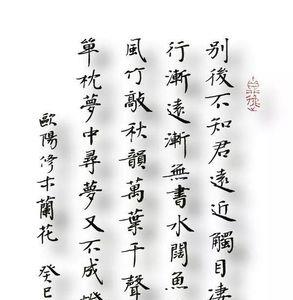 別後不知君遠近觸目淒
行漸遠漸無書水闊魚
風竹敲秋韻萬葉千聲
單枕夢中尋夢又不成
歐陽修木蘭花
癸巳